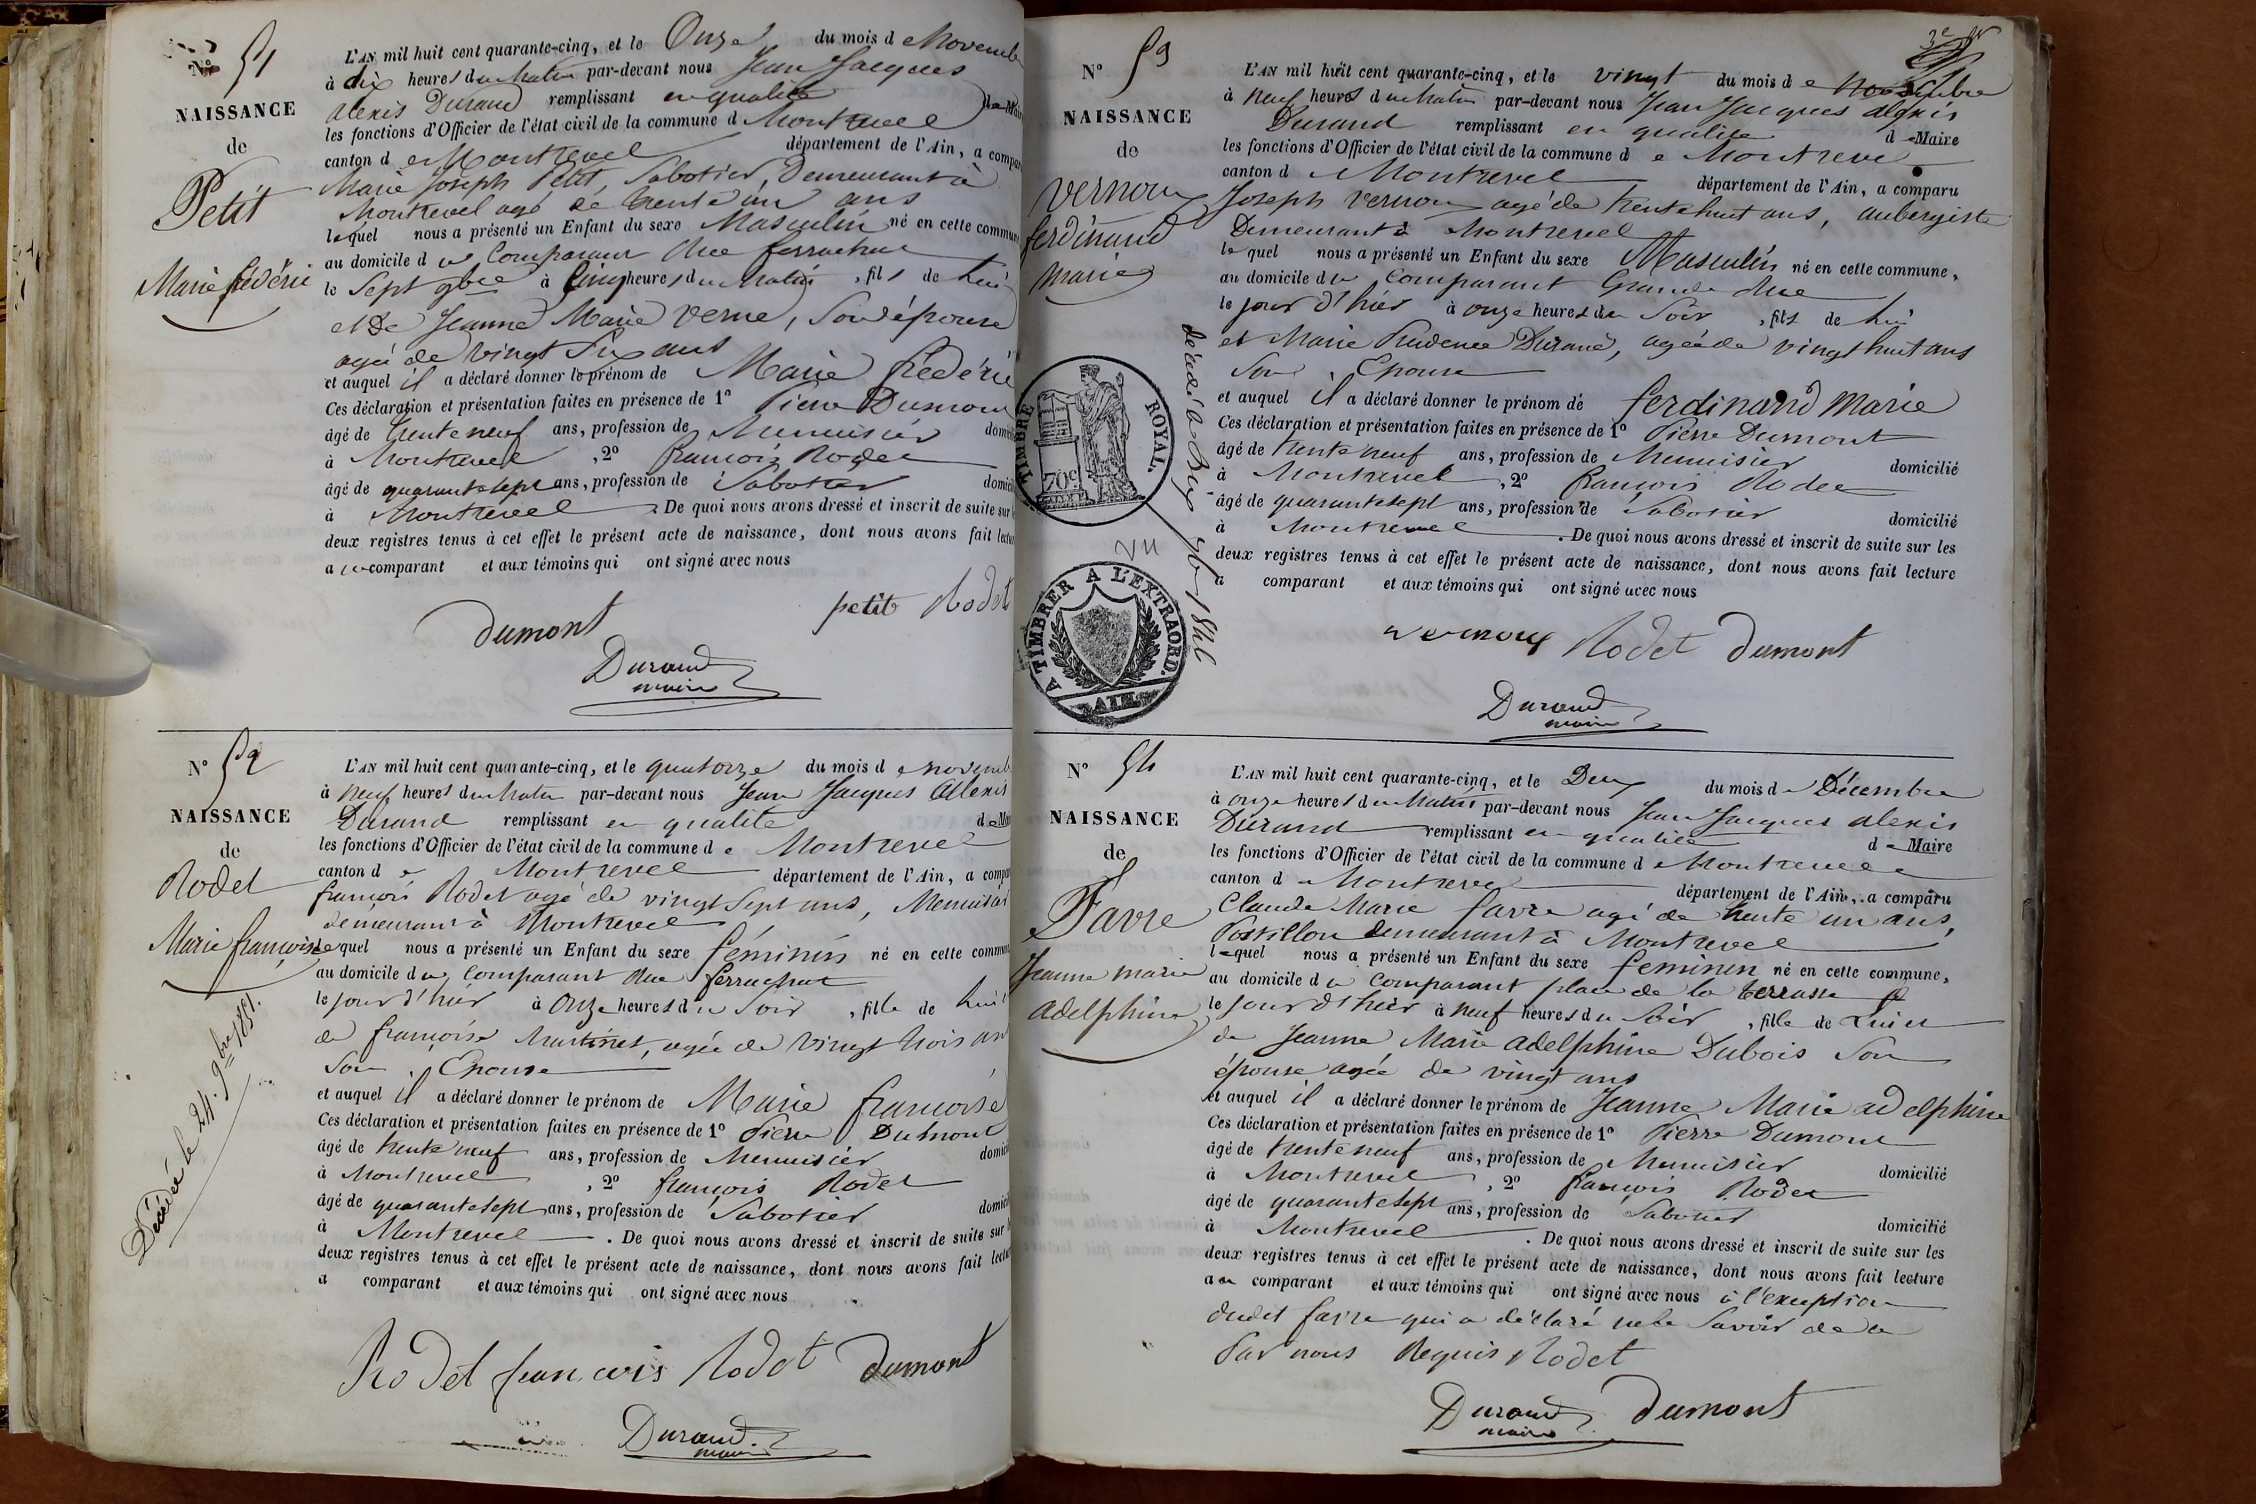 N° 51
NAISSANCE
de
Petit
Marie frédéric
L'AN mil huit cent quarante-cinq, et le Onze du mois de Novembre
à dix heures du Matin par-devant nous Jean Jacques
Alexis Durand remplissant en qualité de Maire
les fonctions d'Officier de l'état civil de la commune d Montrevel
canton de Montrevel département de l'Ain, a comparu
Marie Joseph Petit, Sabotier, Demeurant à
Montrevel agé de trente un ans
lequel nous a présenté un Enfant du sexe Masculin né en cette commune
au domicile du Comparant Rue ferrachat
le Sept 9bre à Cinq heures du Matin, fils de lui
et De Jeanne Marie Verne, Son épouse
agée de vingt Six ans
et auquel il a déclaré donner le prénom de Marie frédéric
Ces déclaration et présentation faites en présence de 1° Pierre Dumont
âgé de trente neuf ans, profession de Menuisier domicilié
à Montrevel, 2° françois Rodet
âgé de quarante sept ans, profession de Sabotier domicilié
à Montrevel. De quoi nous avons dressé et inscrit de suite sur les
deux registres tenus à cet effet le présent acte de naissance, dont nous avons fait lecture
au comparant et aux témoins qui ont signé avec nous
petit Rodet
dumont
Durand
maire
N° 52
NAISSANCE
de
Rodet
Marie françoise
Décédée le 24. 9bre 1851.
L'AN mil huit cent quarante-cinq, et le quatorze du mois de novembre
à neuf heures du Matin par-devant nous Jean Jacques Alexis
Durand remplissant en qualité de Maire
les fonctions d'Officier de l'état civil de la commune de Montrevel
canton de Montrevel département de l'Ain, a comparu
françois Rodet agé de vingt Sept ans, Menuisier
demeurant à Montrevel
lequel nous a présenté un Enfant du sexe féminin né en cette commune
au domicile du Comparant Rue ferrachat
le jour d'hier à Onze heures du Soir, fille de lui et
de françoise Martinet, agée de vingt trois ans
Son Epouse
et auquel il a déclaré donner le prénom de Marie françoise
Ces déclaration et présentation faites en présence de 1° Pierre Dumont
âgé de trente neuf ans, profession de Menuisier domicilié
à Montrevel, 2° françois Rodet
âgé de quarante sept ans, profession de Sabotier domicilié
à Montrevel. De quoi nous avons dressé et inscrit de suite sur les
deux registres tenus à cet effet le présent acte de naissance, dont nous avons fait lecture
a comparant et aux témoins qui ont signé avec nous
Rodet françois Rodet dumont
Durand
maire
N° 53
NAISSANCE
de
Vernoux
ferdinand
Marie
TIMBRE ROYAL.
70c
A TIMBRER A L'EXTRAORD.
AIN
L'AN mil huit cent quarante-cinq, et le vingt du mois de novembre
à neuf heures du Matin par-devant nous Jean Jacques alexis
Durand remplissant en qualité de Maire
les fonctions d'Officier de l'état civil de la commune de Montrevel
canton d Montrevel département de l'Ain, a comparu
Joseph Vernoux agé de trente huit ans, aubergiste
Demeurant à Montrevel
lequel nous a présenté un Enfant du sexe Masculin né en cette commune,
au domicile du Comparant Grande Rue
le jour d'hier à onze heures du Soir, fils de lui
et Marie Prudence Durand, agée de vingt huit ans
Son Epouse
et auquel il a déclaré donner le prénom de ferdinand Marie
Ces déclaration et présentation faites en présence de 1° Pierre Dumont
âgé de trente neuf ans, profession de Menuisier domicilié
à Montrevel, 2° françois Rodet
âgé de quarante sept ans, profession de Sabotier domicilié
à Montrevel. De quoi nous avons dressé et inscrit de suite sur les
deux registres tenus à cet effet le présent acte de naissance, dont nous avons fait lecture
à comparant et aux témoins qui ont signé avec nous
vernoux Rodet dumont
Durand
maire
N° 54
NAISSANCE
de
Favre
Jeanne marie
adelphine
L'AN mil huit cent quarante-cinq, et le Deux du mois de Décembre
à onze heures du Matin par-devant nous Jean Jacques alexis
Durand remplissant en qualité de Maire
les fonctions d'Officier de l'état civil de la commune de Montrevel
canton de Montrevel département de l'Ain, a comparu
Claude Marie favre agé de trente un ans,
Postillon demeurant à Montrevel
lequel nous a présenté un Enfant du sexe feminin né en cette commune,
au domicile du Comparant place de la terrasse
le jour d'hier à neuf heures du Soir, fille de Lui et
de Jeanne Marie adelphine Dubois Son
épouse agée de vingt ans
et auquel il a déclaré donner le prénom de Jeanne Marie adelphine
Ces déclaration et présentation faites en présence de 1° Pierre Dumont
âgé de trente neuf ans, profession de Menuisier domicilié
à Montrevel, 2° françois Rodet
âgé de quarante sept ans, profession de Sabotier domicilié
à Montrevel. De quoi nous avons dressé et inscrit de suite sur les
deux registres tenus à cet effet le présent acte de naissance, dont nous avons fait lecture
au comparant et aux témoins qui ont signé avec nous à l'exception
dudit favre qui a déclaré ne le Savoir de ce
Par nous Requis Rodet
Durand dumont
maire